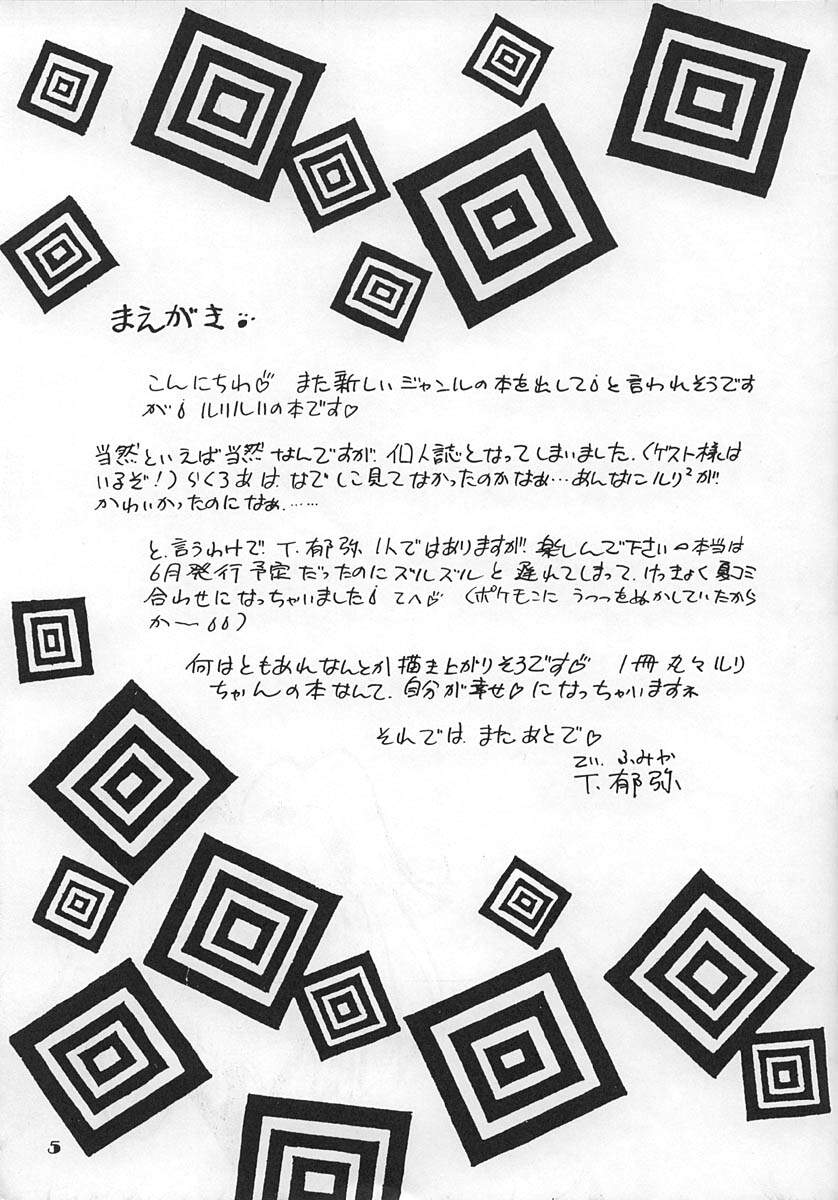 まえがき
こんにちわ♡ また新しいジャンルの本を出して💧と言われそうです
が💧ルリルリの本です♡
当然といえば当然なんですが、個人誌となってしまいました。(ゲスト様は
いるぞ!)らくろあは、なでしこ見てなかったのかなぁ…あんなにルリ²が
かわいかったのになぁ……
と、言うわけで、T.郁弥1人ではありますが、楽しんで下さい 本当は
6月発行予定だったのにズルズルと遅れてしまって、けっきょく夏コミ
合わせになっちゃいました💧てへ♡ (ポケモンにうつつをぬかしていたから
か〜💧💧)
何はともあれなんとか描き上がりそうです♡ 1冊丸々ルリ
ちゃんの本なんて、自分が幸せ♡になっちゃいますネ
それでは、またあとで♡
てぃ.ふみや
T.郁弥
5